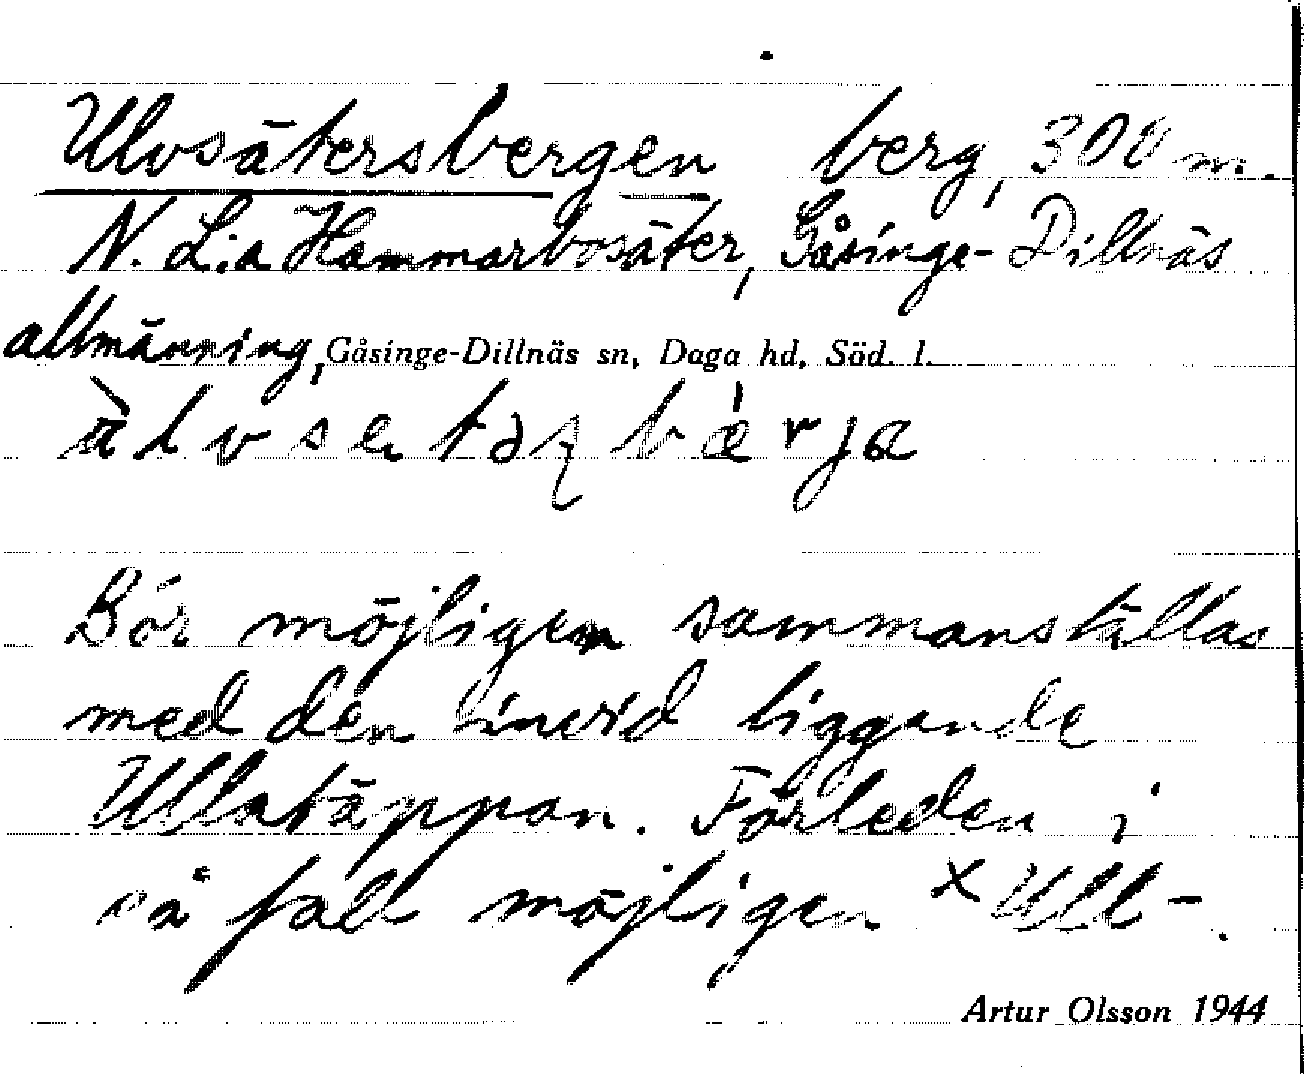 Ulvsätersbergen berg, 300 m.
N. L:a Hammarbosäter, Gåsinge-Dillnäs
allmänning, Gåsinge-Dillnäs sn, Daga hd, Söd. l.
Bör möjligen sammanställas
med den invid liggande
Ullatäppan. Förleden i
så fall möjligen × Ull-.
Artur Olsson 1944